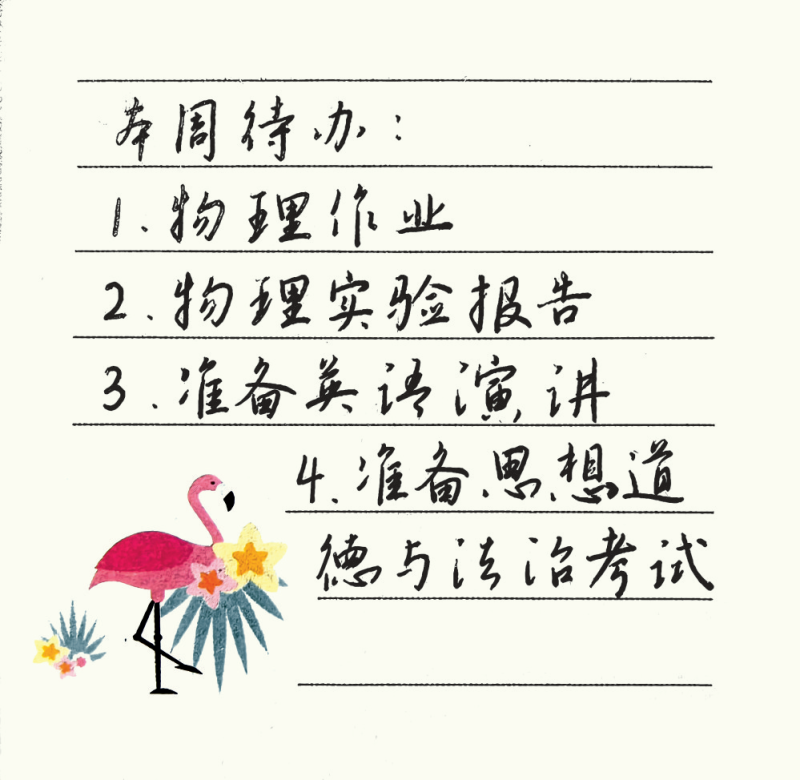 本周待办：
1.物理作业
2.物理实验报告
3.准备英语演讲
4.准备思想道
德与法治考试